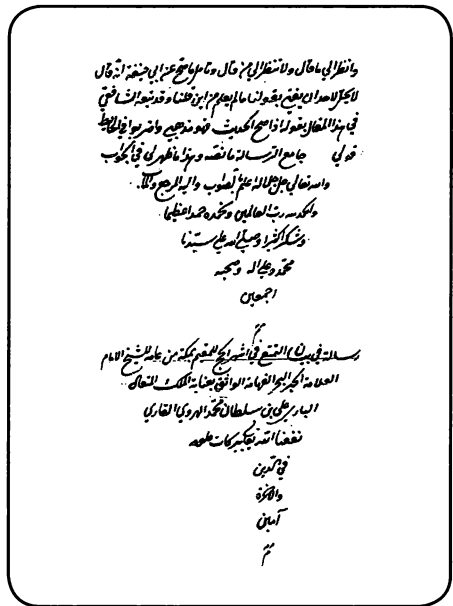 وانظر الى ما قال ولا تنظر الى من قال وتأمل ما صح عن ابي حنيفة انه قال
لا يحل لاحد ان يفتي بقولنا ما لم يعلم من اين قلنا وقد تبعه الشافعي
في هذا المقال بقوله اذا صح الحديث فهو مذهبي واضربوا في الحائط
قولي جامع الرسالة ما نقصه وهذا ما ظهر لي في الجواب
والله تعالى جل جلاله اعلم بالصواب واليه المرجع والمآب
والحمد لله رب العالمين ونحمده حمدا عظيما
وشكرا كثيرا وصلى الله على سيدنا
محمد وعلى اله وصحبه
اجمعين
تم
رسالة في بيان التمتع في اشهر الحج للمقيم بمكة من عامه للشيخ الامام
العلامة الحبر البحر الفهامة الواثق بعناية الملك المتعالي
الباري علي بن سلطان محمد الهروي القاري
نفعنا الله ببركات علومه
في الدين
والاخرة
آمين
تم